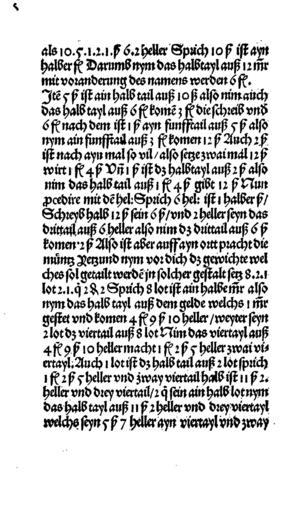 als 10.5.1.2.1.ꝑ 6.2 heller Sprich 10 ꝑ ist ayn
halber fl Darumb nym das halbtayl auß 12 mr
mit voranderung des namens werden 6 fl.
Jtē 5 ꝑ ist ain halb tail auß 10 ß also nim auch
das halb tayl auß 6 fl komē 3 fl die schreib vnd
6 fl nach dem ist 1 ꝑ ayn funfftail auß 5 ꝑ also
nym ain funfftail auß 3 fl komen 12 ꝑ Auch 2 ꝑ
ist nach ayn mal so vil / also setze zwai mal 12 ꝑ
wirt 1 fl 4 ꝑ Vn̄ 1 ꝑ ist dz halbtayl auß 2 ꝑ also
nim das halb tail auß 1 fl 4 ꝑ gibt 12 ꝑ Nun
pcedire mit dē hel: Sprich 6 hel: ist 1 halber ꝑ/
Schreyb halb 12 ꝑ sein 6 ꝑ/vnd 2 heller seyn das
drittail auß 6 heller also nim dz drittail auß 6 ꝑ
komen 2 ꝑ Also ist aber auff ayn ortt pracht die
müntz Yetzund nym vor dich dz gewichte wel
ches sol getailt werdē jn solcher gestalt setz 8.2.1
lot 2.1.q̄ 2 & 2 Sprich 8 lot ist ain halbe mr also
nym das halb tayl auß dem gelde welchs 1 mr
gestet vnd komen 4 fl 9 ꝑ 10 heller / weyter seyn
2 lot dz viertail auß 8 lot Nim das viertayl auß
4 fl 9 ꝑ 10 heller macht 1 fl 2 ꝑ 5 heller zwai vi-
ertayl: Auch 1 lot ist dz halb tail auß 2 lot sprich
1 fl 2 ꝑ 5 heller vnd zway viertail halb ist 11 ꝑ 2.
heller vnd drey viertail / 2 q̄ sein ain halb lot nym
das halb tayl auß 11 ꝑ 2 heller vnd drey viertayl
welchs seyn 5 ꝑ 7 heller ayn viertayl vnd zway